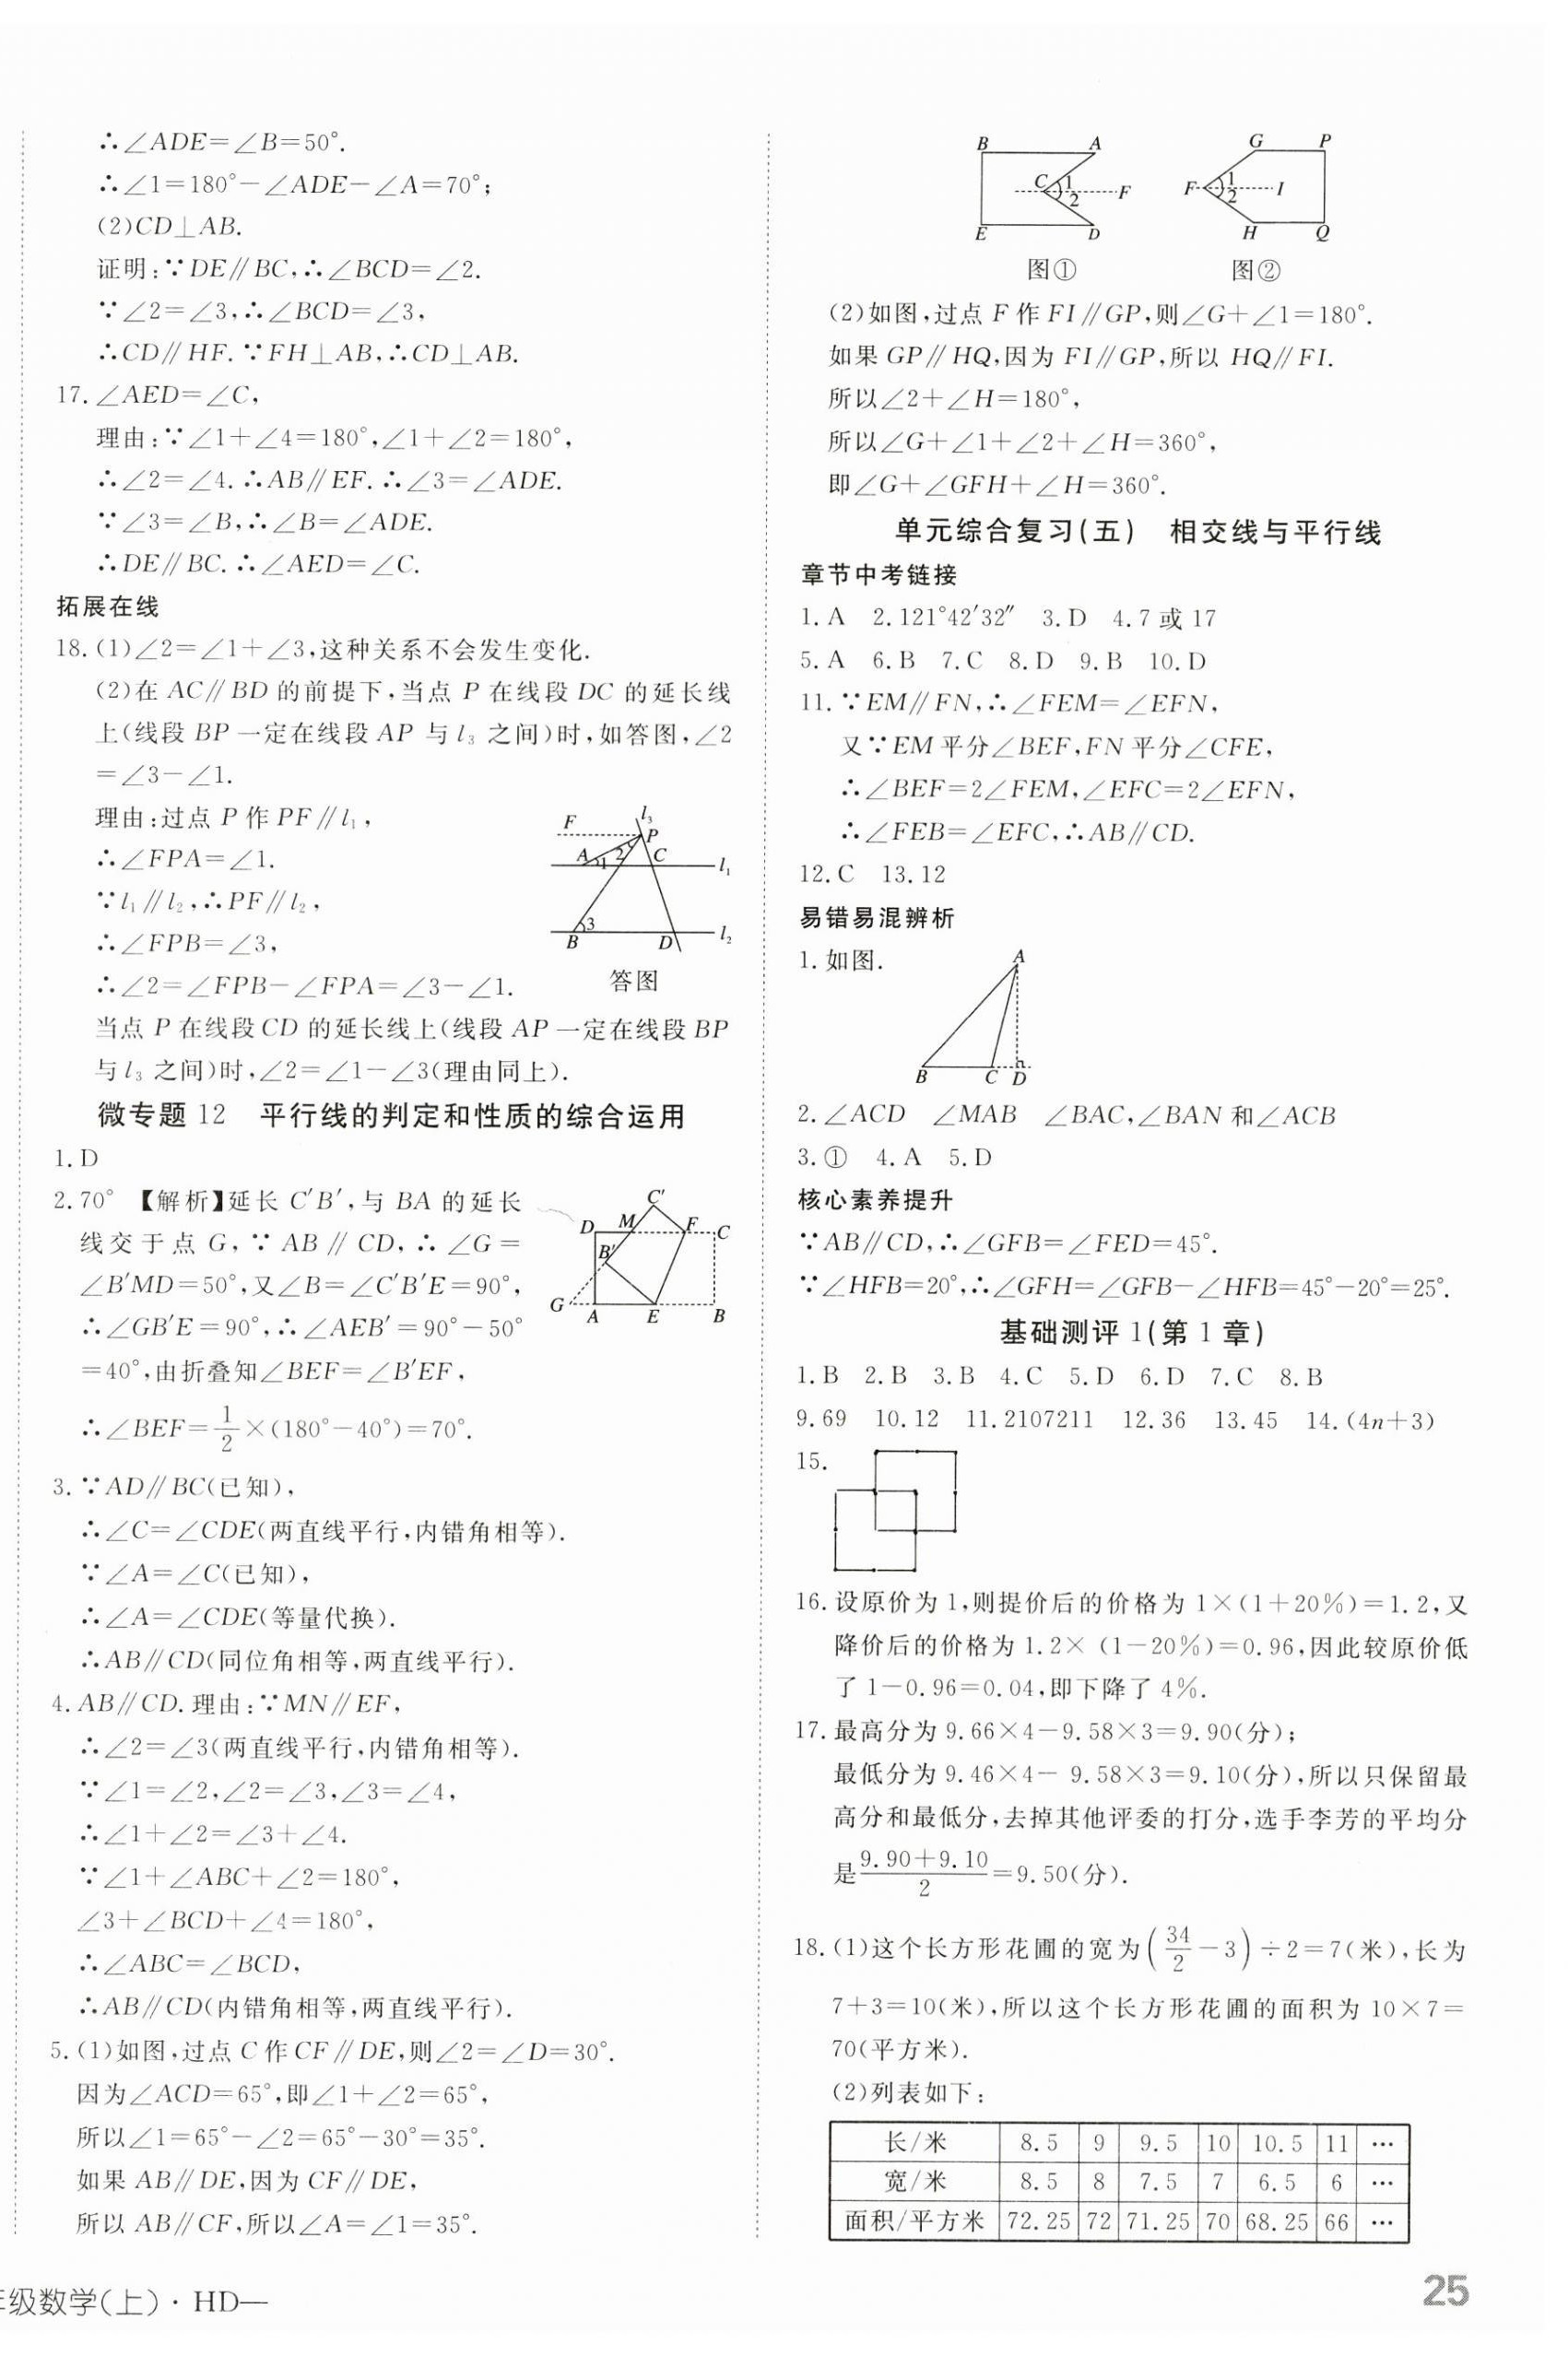 ∴∠ADE=∠B=50°.
∴∠1=180°-∠ADE-∠A=70°;
(2)CD⊥AB.
证明:∵DE∥BC,∴∠BCD=∠2.
∵∠2=∠3,∴∠BCD=∠3,
∴CD∥HF.∵FH⊥AB,∴CD⊥AB.
17.∠AED=∠C,
理由:∵∠1+∠4=180°,∠1+∠2=180°,
∴∠2=∠4.∴AB∥EF.∴∠3=∠ADE.
∵∠3=∠B,∴∠B=∠ADE.
∴DE∥BC.∴∠AED=∠C.
拓展在线
18.(1)∠2=∠1+∠3,这种关系不会发生变化.
(2)在 AC∥BD 的前提下,当点 P 在线段 DC 的延长线
上(线段 BP 一定在线段 AP 与 l₃ 之间)时,如答图,∠2
=∠3-∠1.
理由:过点 P 作 PF∥l₁,
∴∠FPA=∠1.
∵l₁∥l₂,∴PF∥l₂,
∴∠FPB=∠3,
∴∠2=∠FPB-∠FPA=∠3-∠1.
F l₃ P A 1 2 C l₁ 3 B D l₂
答图
当点 P 在线段 CD 的延长线上(线段 AP 一定在线段 BP
与 l₃ 之间)时,∠2=∠1-∠3(理由同上).
微专题 12 平行线的判定和性质的综合运用
1.D
2.70° 【解析】延长 C′B′,与 BA 的延长
线交于点 G,∵AB∥CD,∴∠G=
∠B′MD=50°,又∠B=∠C′B′E=90°,
∴∠GB′E=90°,∴∠AEB′=90°-50°
=40°,由折叠知∠BEF=∠B′EF,
∴∠BEF=1/2×(180°-40°)=70°.
C′ D M F C B′ G A E B
3.∵AD∥BC(已知),
∴∠C=∠CDE(两直线平行,内错角相等).
∵∠A=∠C(已知),
∴∠A=∠CDE(等量代换).
∴AB∥CD(同位角相等,两直线平行).
4.AB∥CD.理由:∵MN∥EF,
∴∠2=∠3(两直线平行,内错角相等).
∵∠1=∠2,∠2=∠3,∠3=∠4,
∴∠1+∠2=∠3+∠4.
∵∠1+∠ABC+∠2=180°,
∠3+∠BCD+∠4=180°,
∴∠ABC=∠BCD,
∴AB∥CD(内错角相等,两直线平行).
5.(1)如图,过点 C 作 CF∥DE,则∠2=∠D=30°.
因为∠ACD=65°,即∠1+∠2=65°,
所以∠1=65°-∠2=65°-30°=35°.
如果 AB∥DE,因为 CF∥DE,
所以 AB∥CF,所以∠A=∠1=35°.
B A C 1 2 F E D
图①
G P F 1 2 I H Q
图②
(2)如图,过点 F 作 FI∥GP,则∠G+∠1=180°.
如果 GP∥HQ,因为 FI∥GP,所以 HQ∥FI.
所以∠2+∠H=180°,
所以∠G+∠1+∠2+∠H=360°,
即∠G+∠GFH+∠H=360°.
单元综合复习(五) 相交线与平行线
章节中考链接
1.A 2.121°42′32″ 3.D 4.7 或 17
5.A 6.B 7.C 8.D 9.B 10.D
11.∵EM∥FN,∴∠FEM=∠EFN,
又∵EM 平分∠BEF,FN 平分∠CFE,
∴∠BEF=2∠FEM,∠EFC=2∠EFN,
∴∠FEB=∠EFC,∴AB∥CD.
12.C 13.12
易错易混辨析
1.如图.
A B C D
2.∠ACD ∠MAB ∠BAC,∠BAN 和∠ACB
3.① 4.A 5.D
核心素养提升
∵AB∥CD,∴∠GFB=∠FED=45°.
∵∠HFB=20°,∴∠GFH=∠GFB-∠HFB=45°-20°=25°.
基础测评 1(第 1 章)
1.B 2.B 3.B 4.C 5.D 6.D 7.C 8.B
9.69 10.12 11.2107211 12.36 13.45 14.(4n+3)
15.
16.设原价为 1,则提价后的价格为 1×(1+20%)=1.2,又
降价后的价格为 1.2×(1-20%)=0.96,因此较原价低
了 1-0.96=0.04,即下降了 4%.
17.最高分为 9.66×4-9.58×3=9.90(分);
最低分为 9.46×4-9.58×3=9.10(分),所以只保留最
高分和最低分,去掉其他评委的打分,选手李芳的平均分
是(9.90+9.10)/2=9.50(分).
18.(1)这个长方形花圃的宽为(34/2-3)÷2=7(米),长为
7+3=10(米),所以这个长方形花圃的面积为 10×7=
70(平方米).
(2)列表如下:
长/米 8.5 9 9.5 10 10.5 11 …
宽/米 8.5 8 7.5 7 6.5 6 …
面积/平方米 72.25 72 71.25 70 68.25 66 …
级数学(上)·HD—
25